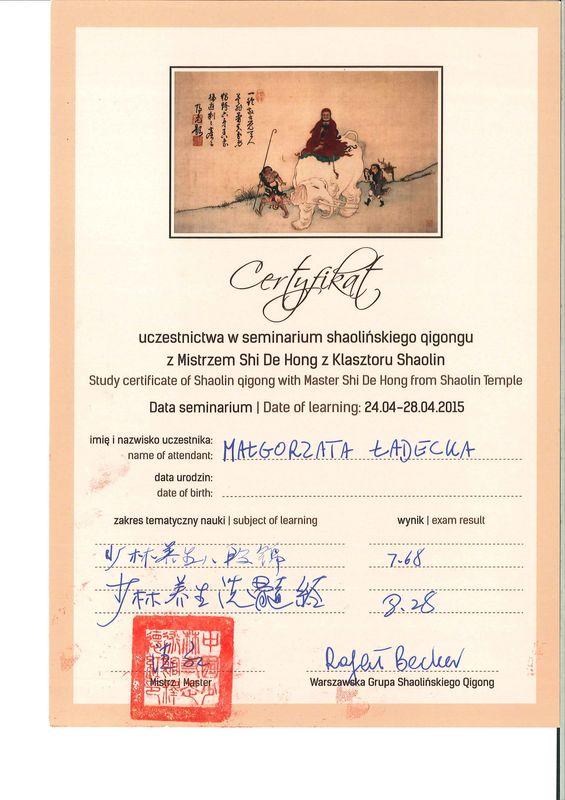 Certyfikat
uczestnictwa w seminarium shaolińskiego qigongu
z Mistrzem Shi De Hong z Klasztoru Shaolin
Study certificate of Shaolin qigong with Master Shi De Hong from Shaolin Temple
Data seminarium | Date of learning: 24.04–28.04.2015
imię i nazwisko uczestnika:
name of attendant: MAŁGORZATA ŁADECKA
data urodzin:
date of birth:
zakres tematyczny nauki | subject of learning wynik | exam result
少林养生八段锦 7.68
少林养生洗髓經 8.28
Rafał Becker
Mistrz | Master Warszawska Grupa Shaolińskiego Qigong